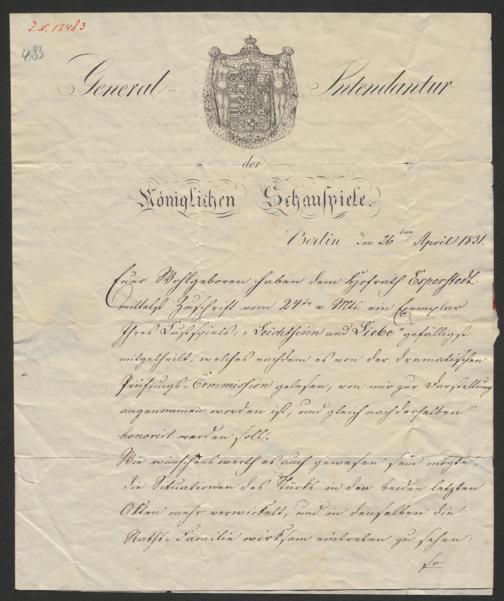 I. N. 12483
483
General Intendantur
der
Königlichen Schauspiele.
Berlin den 26ten April 1831.
Euer Wohlgeboren haben dem Hofrath Esperstedt
mittelst Zuschrift vom 27ten v. Mts ein Exemplar
Ihres Lustspiels: „Leichtsinn und Liebe“ gefälligst
mitgetheilt, welches nachdem es von der dramatischen
Prüfungs-Commission gelesen, von mir zur Darstellung
angenommen worden ist, und gleich nach derselben
honorirt werden soll.
Wie wünschenswerth es auch gewesen sein mögte,
die Situationen des Stücks in den beiden letzten
Akten mehr verwickelt, und in denselben die
Raths-Familie wirksam eintreten zu sehen:
so